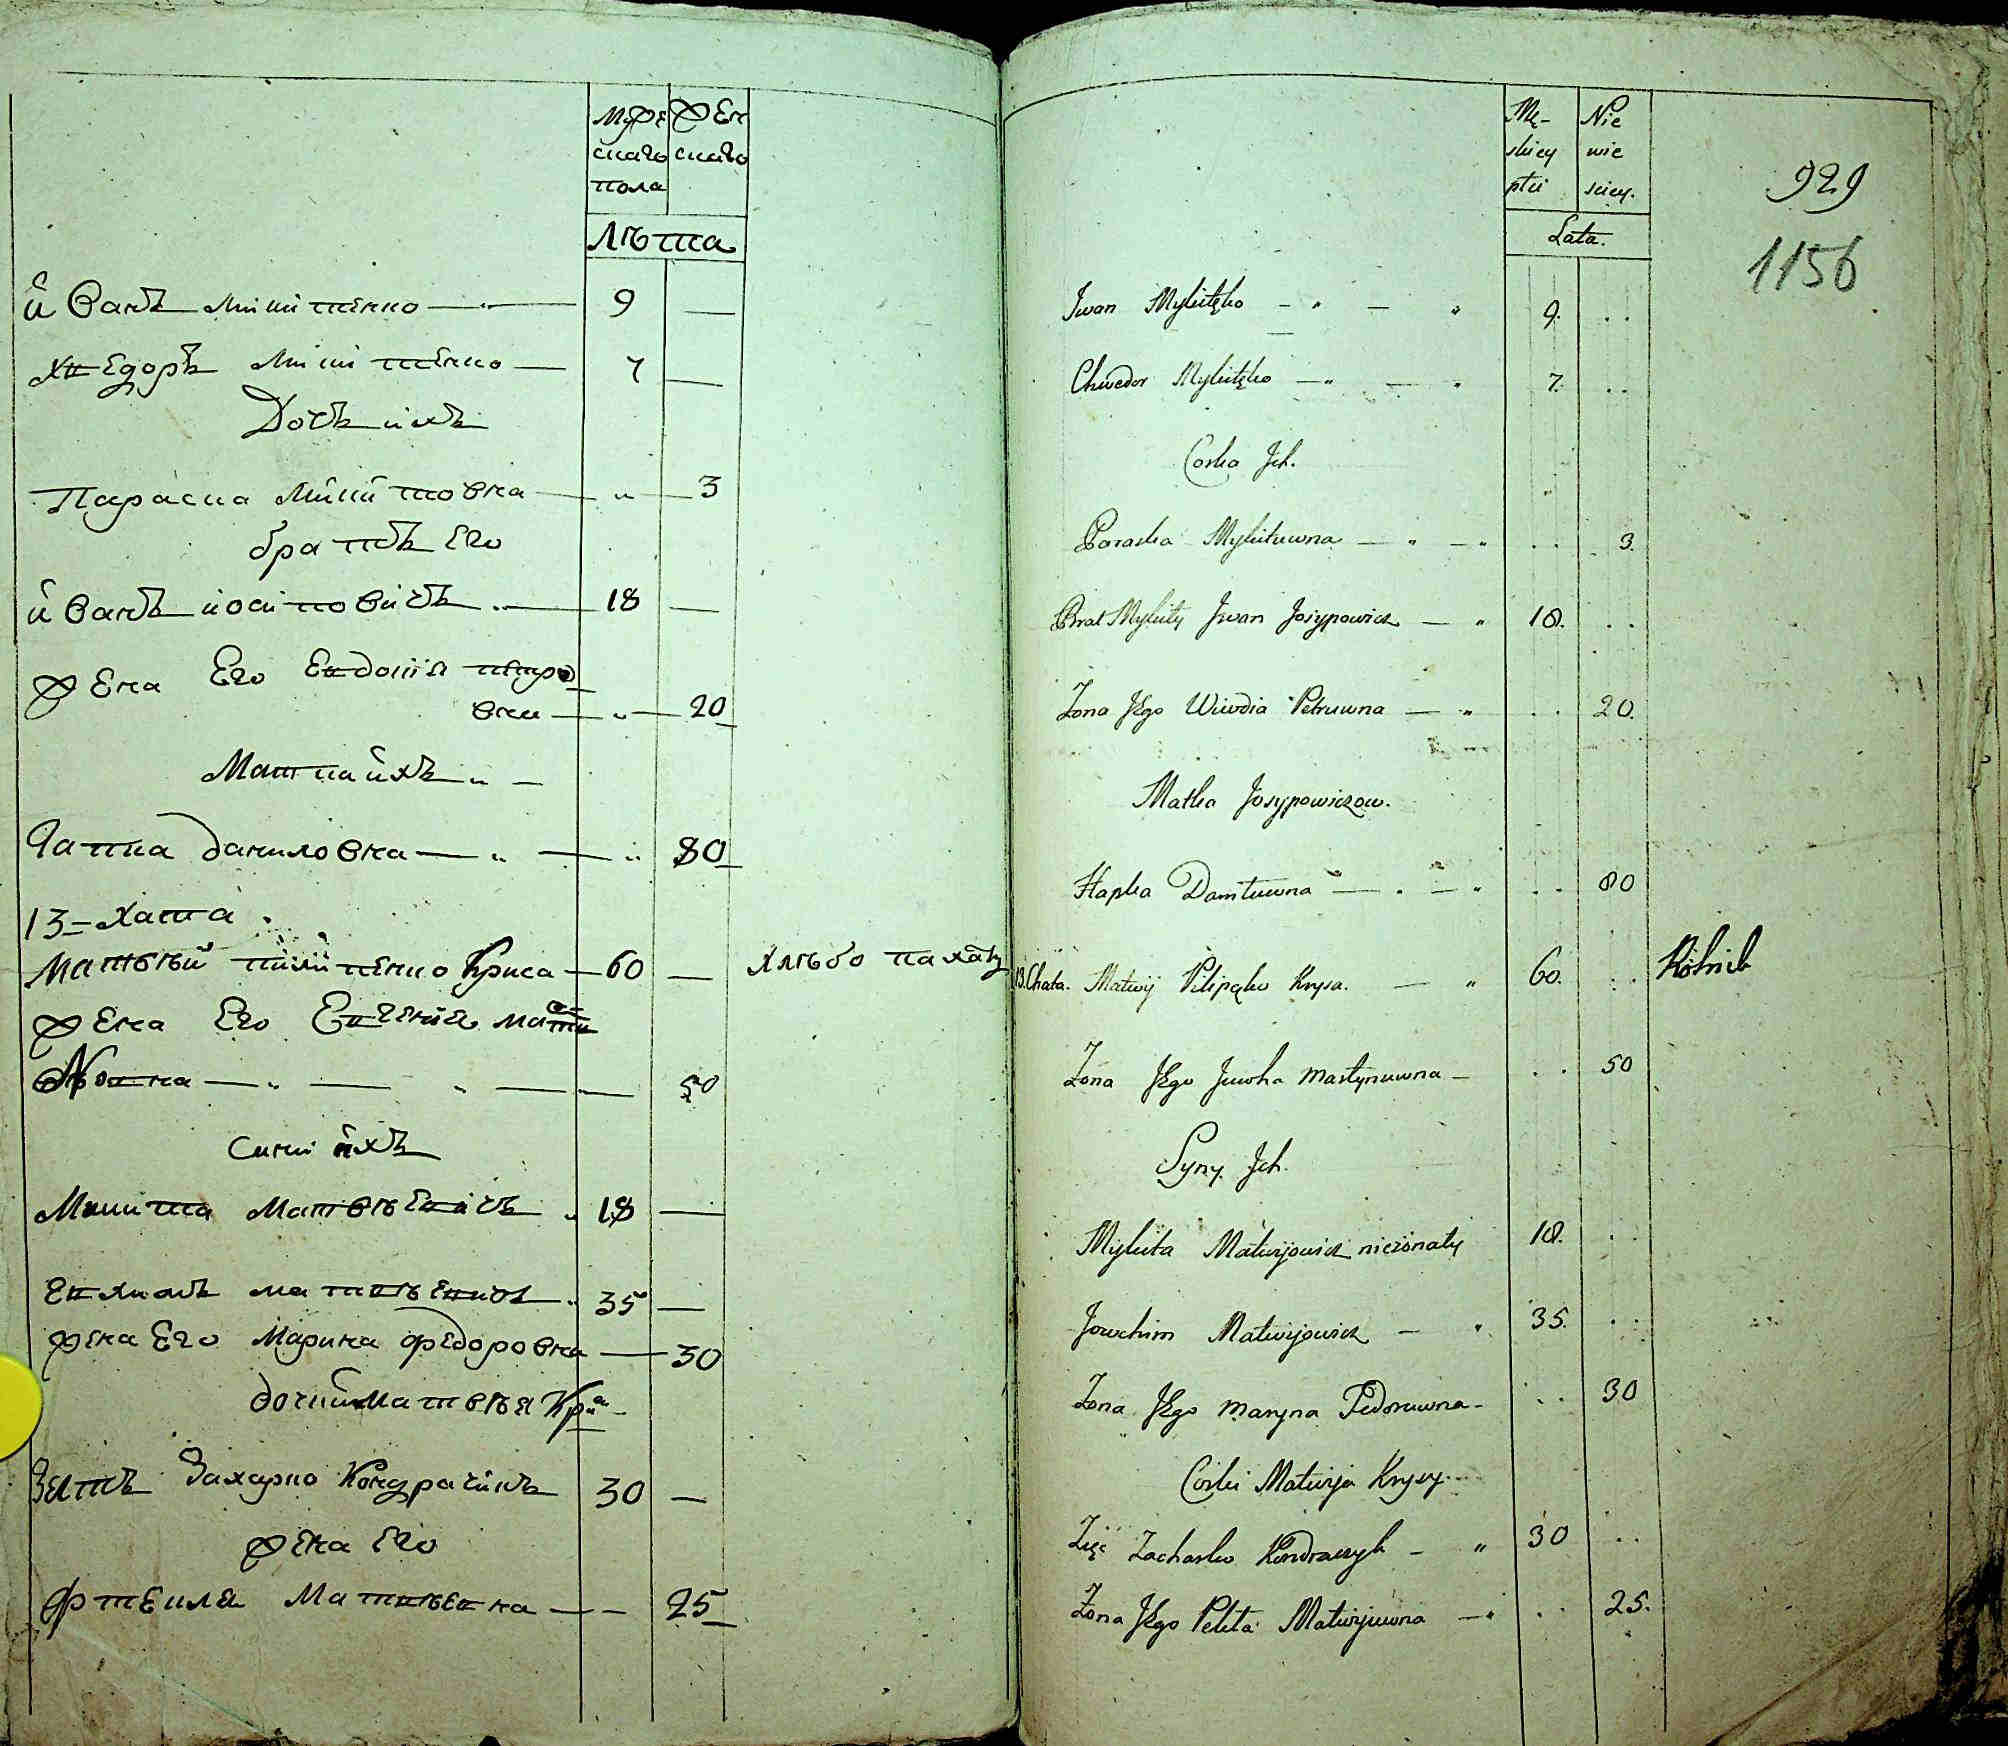 Муже Жен
скаго скаго
пола
Лѣта
Иванъ Микитенко — 9 —
Хведоръ Микитенко — 7 —
Дочь ихъ
Параска Микитовна — „ — 3
братъ Его
Иванъ Иосиповичъ „ — 18 —
Жена Его Евдокия петро
вна — „ — 20
Матка ихъ „ —
Гапка даниловна — „ — „ 80
13 = Хата
Матвѣй пилипенко Криса — 60 — Хлѣбо пахатъ
Жена Его Евгения Марти
новна — „ — „ — 50
Сини ихъ
Микита Матвѣевичъ „ 18 —
Евхимъ матвѣевичъ „ 35 —
жена Его Марина федоровна — 30
дочки Матвѣя Криси
Зять Захарко Кондрачикъ 30 —
жена Его
Матвѣевна — — 25
Mę- Nie
skiey wie
płci sciey.
Lata.
929
1156
Iwan Mykitęko — „ — „ 9. . .
Chwedor Mykitęko — „ — „ 7. . .
Corka Jch.
Paraska Mykituwna — „ — „ . . 3.
Brat Mykity Jwan Josypowicz — „ 18. . .
Zona Jego Wiwdia Petruwna — „ . . 20.
Matka Josypowiczow.
Hapka Daniluwna — „ — „ . . 80
13. Chata. Matwij Pilipęko Krysa. — „ 60. . . Rolnik
Zona Jego Juwha Martynuwna — . . 50
Syny Jch.
Mykita Matwijowicz nieżonaty 18. . .
Jowchim Matwijowicz — „ 35. . .
Zona Jego Maryna Fedoruwna — . . 30
Corki Matwija Krysy.
Zięć Zacharko Kondraczyk — „ 30 . .
Zona Jego Matwijuwna — „ . . 25.